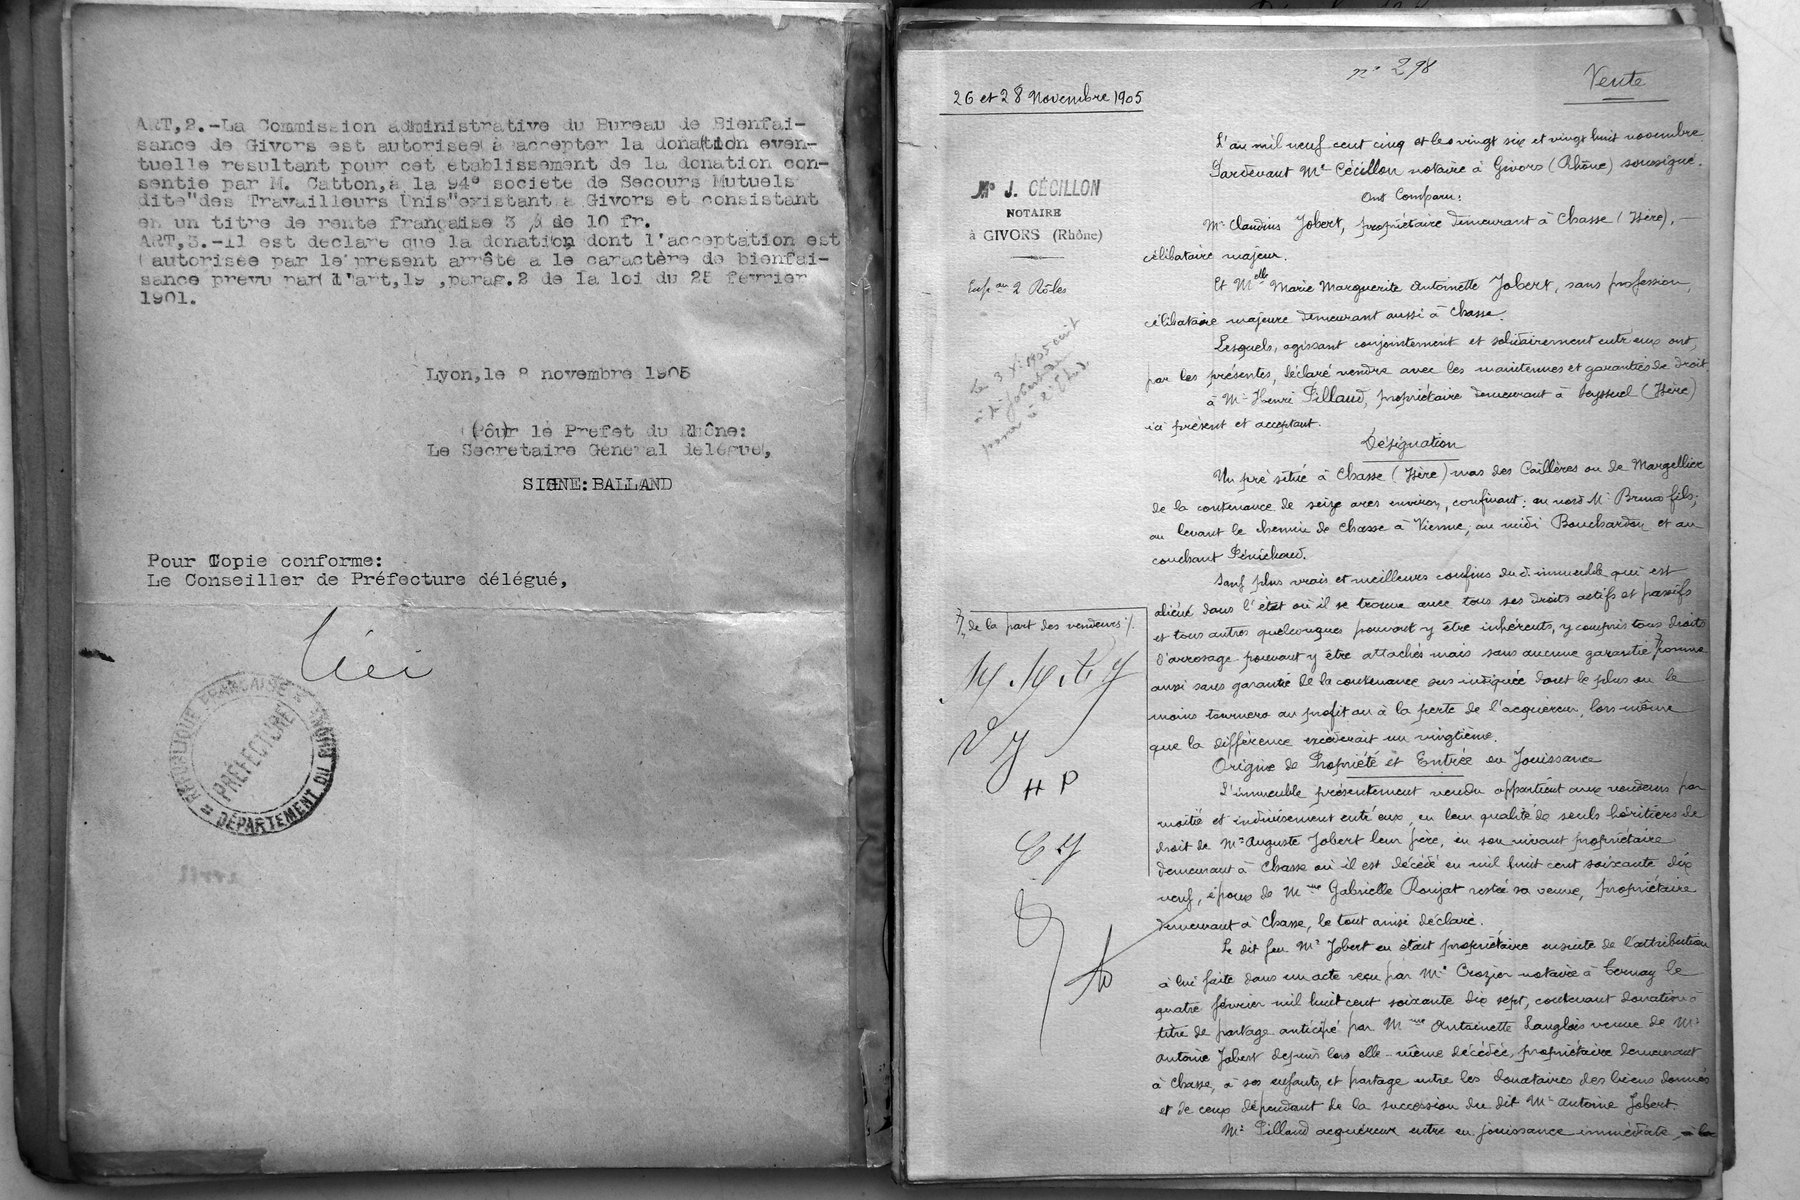 ART,2.-La Commission administrative du Bureau de Bienfai-
sance de Givors est autorisée à accepter la donation even-
tuelle resultant pour cet etablissement de la donation con-
sentie par M. Catton,a la 94e societe de Secours Mutuels
dite"des Travailleurs Unis"existant a Givors et consistant
en un titre de rente française 3 % de 10 fr.
ART,3.-Il est declare que la donation dont l'acceptation est
autorisée par le present arrêté a le caractère de bienfai-
sance prevu par l'art,19 ,parag.2 de la loi du 25 fevrier
1901.
Lyon,le 8 novembre 1905
Pour le Prefet du Rhône:
Le Secretaire Général délégué,
SIGNE:BALLAND
Pour Copie conforme:
Le Conseiller de Préfecture délégué,
RÉPUBLIQUE FRANÇAISE
PRÉFECTURE
DÉPARTEMENT DU RHÔNE
n° 298
Vente
26 et 28 Novembre 1905
Me J. CÉCILLON
NOTAIRE
à GIVORS (Rhône)
2 Rôles
L'an mil neuf cent cinq et les vingt six et vingt huit novembre
Pardevant Me Cécillon notaire à Givors (Rhône) soussigné.
Ont Comparu:
Mr Claudius Jobert, propriétaire demeurant à Chasse (Isère),
célibataire majeur.
Et Melle Marie Marguerite Antoinette Jobert, sans profession,
célibataire majeure demeurant aussi à Chasse.
Lesquels, agissant conjointement et solidairement entre eux ont,
par les présentes, déclaré vendre avec les maintenues et garanties de droit
à Mr Henri Pilland, propriétaire demeurant à Seyssuel (Isère)
ici présent et acceptant.
Désignation
Un pré situé à Chasse (Isère) mas des Caillères ou de Margellier
de la contenance de seize ares environ, confinant: au nord Mr Bruno fils;
au levant le chemin de Chasse à Vienne, au midi Bouchardon et au
couchant Pénichaud.
Sauf plus vrais et meilleurs confins du d. immeuble qui est
aliéné dans l'état où il se trouve avec tous ses droits actifs et passifs
et tous autres quelconques pouvant y être inhérents, y compris tous droits
d'arrosage pouvant y être attachés mais sans aucune garantie comme
aussi sans garantie de la contenance sus indiquée dont le plus ou le
moins tournera au profit ou à la perte de l'acquéreur, lors même
que la différence excéderait un vingtième.
de la part des vendeurs /.
H P
Origine de Propriété et Entrée en Jouissance
L'immeuble présentement vendu appartient aux vendeurs par
moitié et indivisément entre eux, en leur qualité de seuls héritiers de
droit de Mr Auguste Jobert leur père, en son vivant propriétaire
demeurant à Chasse où il est décédé en mil huit cent soixante dix
neuf, époux de Mme Gabrielle Roujat restée sa veuve, propriétaire
demeurant à Chasse, le tout ainsi déclaré.
Le dit feu Mr Jobert en était propriétaire ensuite de l'attribution
à lui faite dans un acte reçu par Me Crozier notaire à Ternay le
quatre février mil huit cent soixante dix sept, contenant donation à
titre de partage anticipé par Mme Antoinette Langlois veuve de Mr
Antoine Jobert depuis lors elle-même décédée, propriétaire demeurant
à Chasse, à ses enfants, et partage entre les donataires des biens donnés
et de ceux dépendant de la succession du dit Mr Antoine Jobert.
Mr Pilland acquéreur entre en jouissance immédiate,